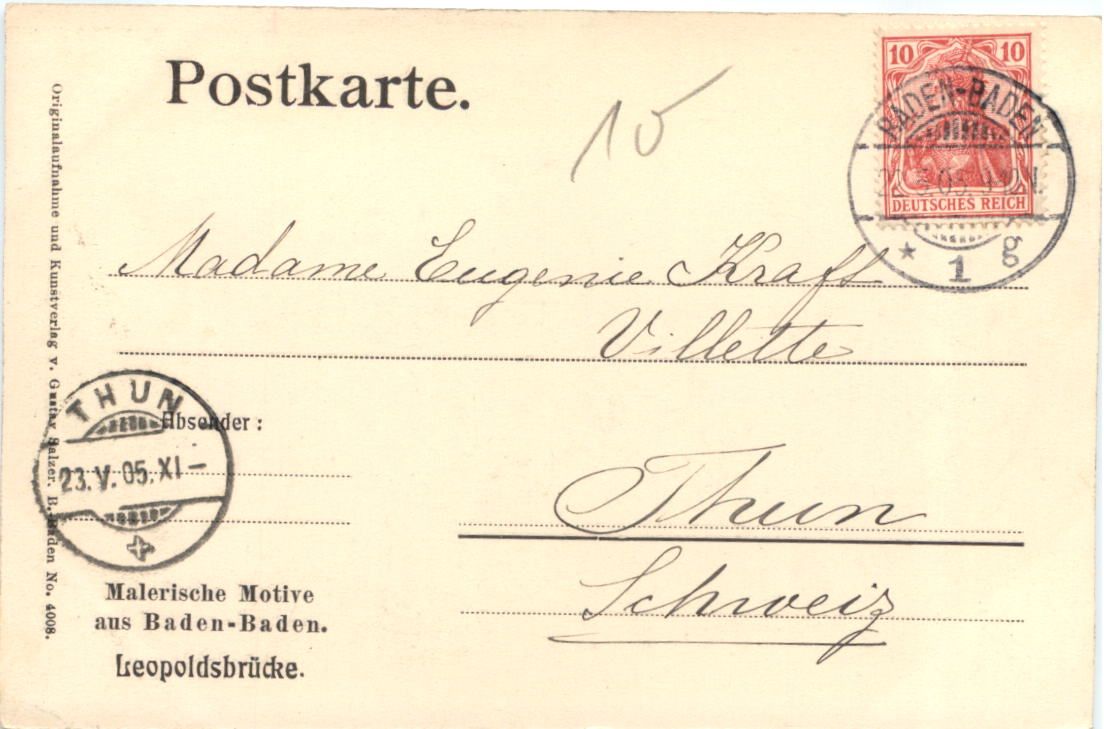 Postkarte.
15
10 10
DEUTSCHES REICH
BADEN-BADEN
* 1 g
Madame Eugenie Kraft
Villette
Thun
Schweiz
THUN
23.V.05.XI–
Absender:
Malerische Motive
aus Baden-Baden.
Leopoldsbrücke.
Originalaufnahme und Kunstverlag v. Gustav Salzer. B.-Baden No. 4008.